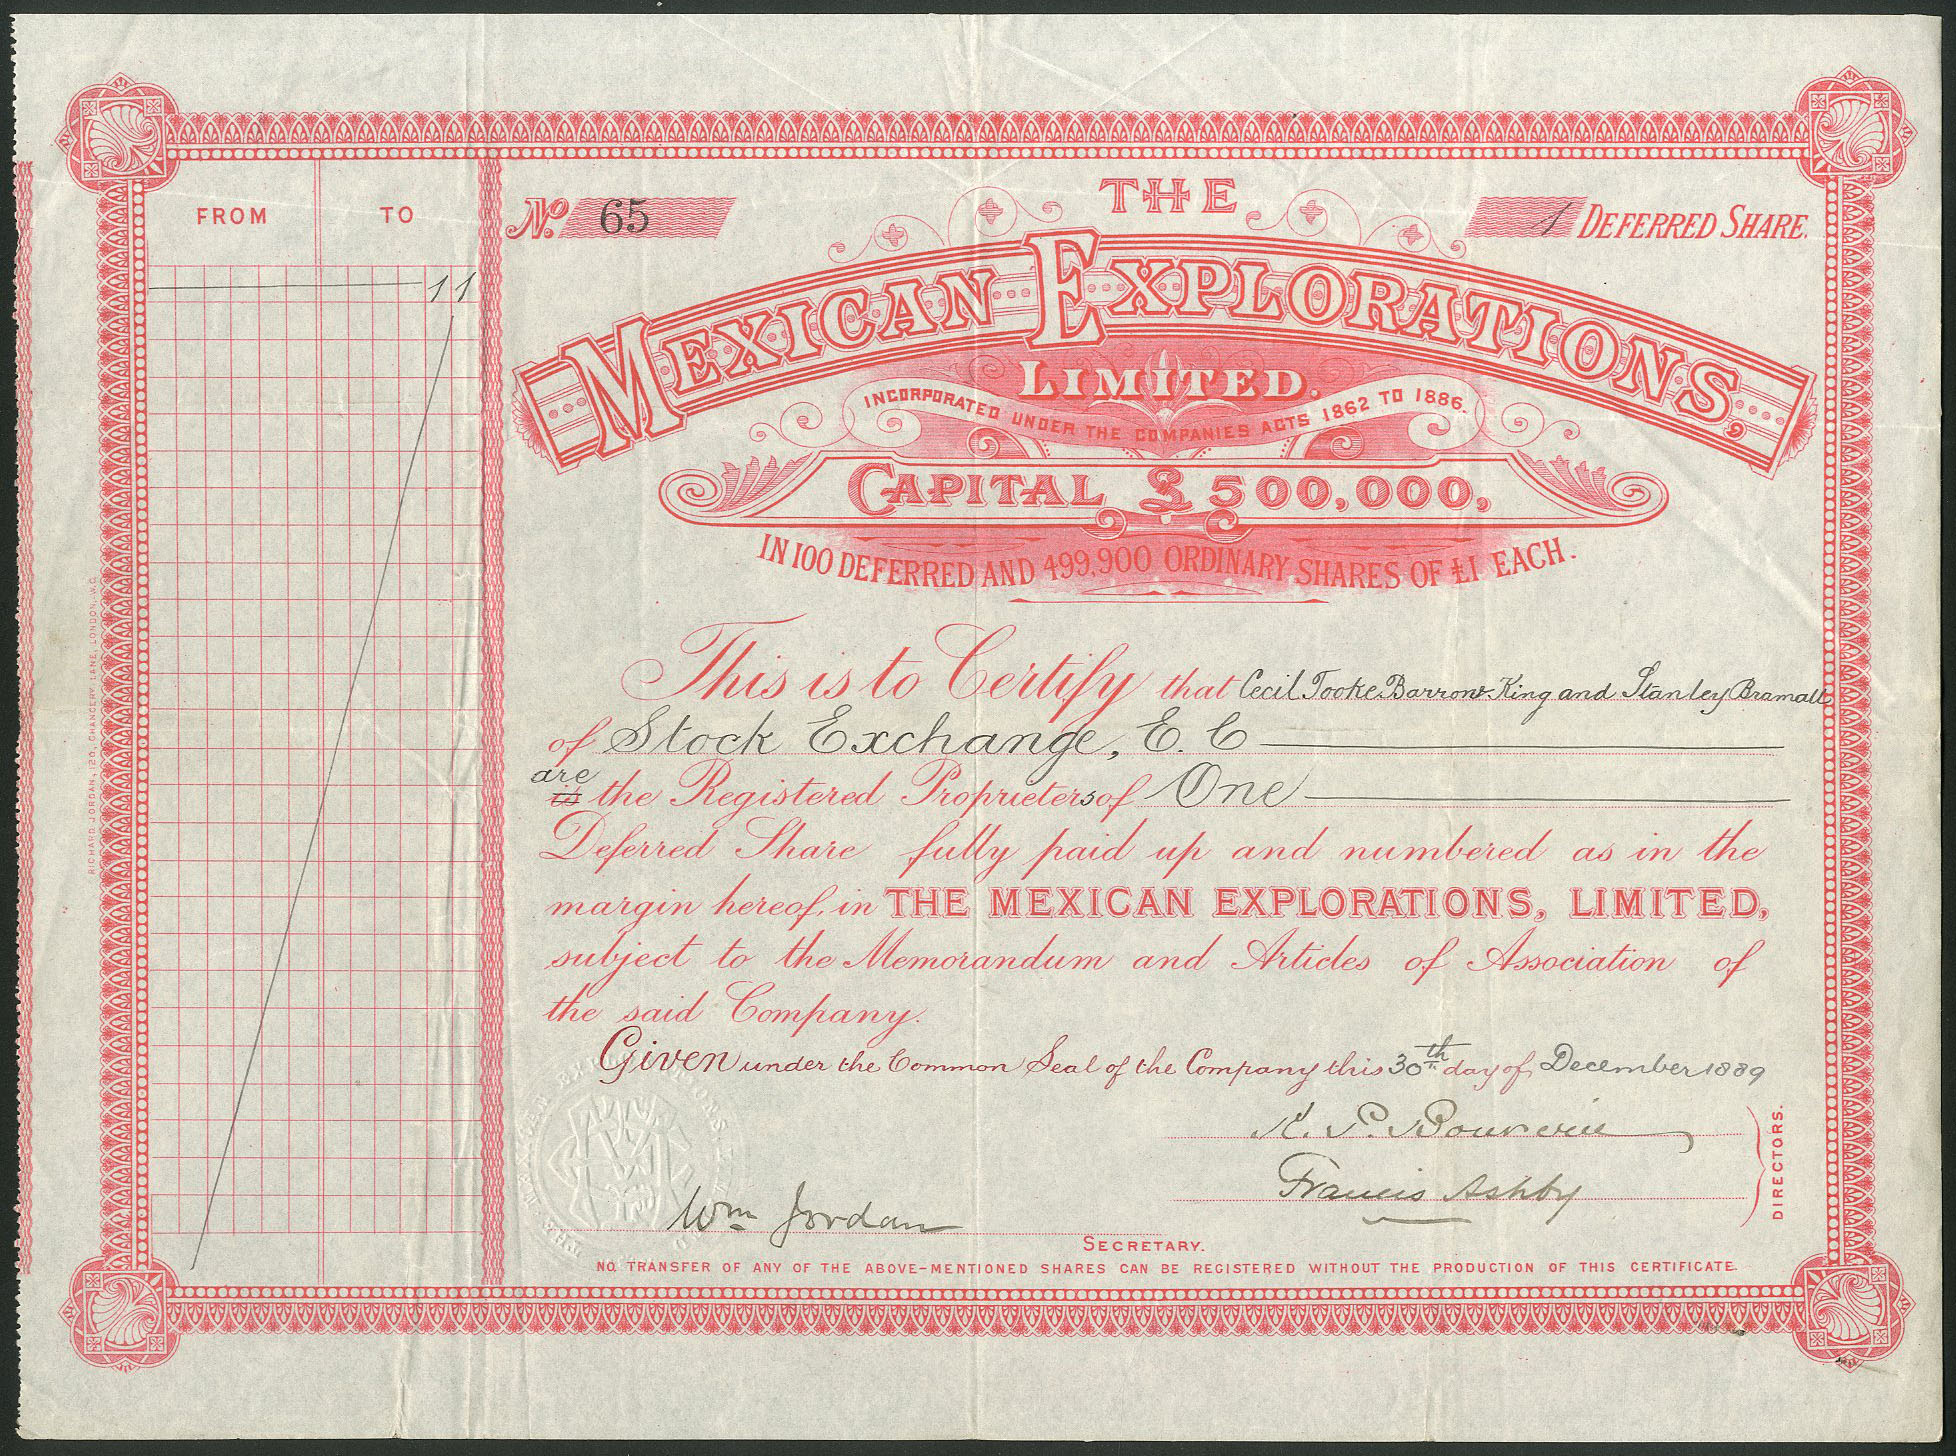 THE
FROM TO
No. 65
1 DEFERRED SHARE.
11
MEXICAN EXPLORATIONS,
LIMITED.
INCORPORATED UNDER THE COMPANIES ACTS 1862 TO 1886.
CAPITAL £500,000,
IN 100 DEFERRED AND 499,900 ORDINARY SHARES OF £1 EACH.
This is to Certify that Cecil Tooke Barrow King and Stanley Bramall
of Stock Exchange, E. C
are
is the Registered Proprietors of One
Deferred Share fully paid up and numbered as in the
margin hereof, in THE MEXICAN EXPLORATIONS, LIMITED,
subject to the Memorandum and Articles of Association of
the said Company.
Given under the Common Seal of the Company this 30th day of December 1889
Francis Ashby
DIRECTORS.
Wm Jordan
SECRETARY.
NO TRANSFER OF ANY OF THE ABOVE-MENTIONED SHARES CAN BE REGISTERED WITHOUT THE PRODUCTION OF THIS CERTIFICATE.
RICHARD JORDAN, 120, CHANCERY LANE, LONDON, W.C.
THE MEXICAN EXPLORATIONS LIMITED